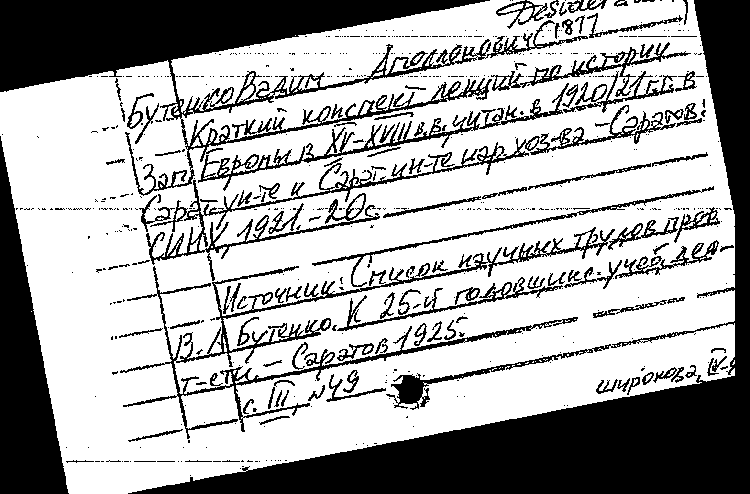 Desiderata
Бутенко Вадим Аполлонович (1877
Краткий конспект лекций по истории
Зап. Европы в XV-XVIII в.в. читан. в 1920/21 г.г. в
Сарат. ун-те и Сарат. ин-те нар. хоз-ва - Саратов:
СИНХ, 1921. - 20 с.
Источник: Список научных трудов проф
В. А Бутенко. К 25-й годовщине. учеб. дея-
т-сти. - Саратов 1925.
с. III, №49
широкова, IV-